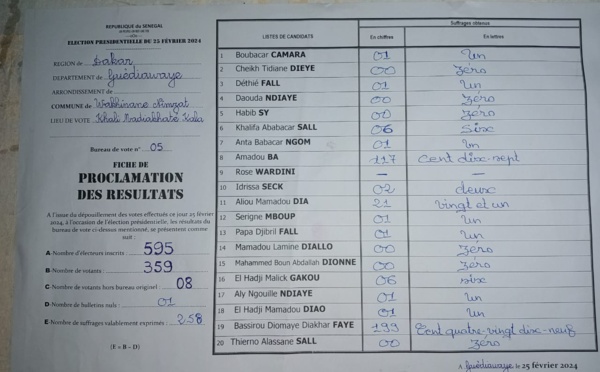 REPUBLIQUE DU SENEGAL
ELECTION PRESIDENTIELLE DU 25 FÉVRIER 2024
REGION DE Dakar
DEPARTEMENT DE Guédiawaye
ARRONDISSEMENT DE
COMMUNE DE Wakhinane Nimzat
LIEU DE VOTE Khali Madiakhaté Kala
Bureau de vote n° 05
FICHE DE
PROCLAMATION
DES RESULTATS
A l'issue du dépouillement des votes effectués ce jour 25 février
2024, à l'occasion de l'élection présidentielle, les résultats du
bureau de vote ci-dessus mentionné, se présentent comme
suit :
A-Nombre d'électeurs inscrits : 595
B-Nombre de votants : 359
C-Nombre de votants hors bureau originel : 08
D-Nombre de bulletins nuls : 01
E-Nombre de suffrages valablement exprimés : 358
(E = B – D)
LISTES DE CANDIDATS
Suffrages obtenus
En chiffres En lettres
1 Boubacar CAMARA 01 Un
2 Cheikh Tidiane DIEYE 00 Zéro
3 Déthié FALL 01 Un
4 Daouda NDIAYE 00 Zéro
5 Habib SY 00 Zéro
6 Khalifa Ababacar SALL 06 Six
7 Anta Babacar NGOM 01 Un
8 Amadou BA 117 Cent dix-sept
9 Rose WARDINI — —
10 Idrissa SECK 02 deux
11 Aliou Mamadou DIA 21 vingt et un
12 Serigne MBOUP 01 Un
13 Papa Djibril FALL 01 Un
14 Mamadou Lamine DIALLO 00 Zéro
15 Mahammed Boun Abdallah DIONNE 00 Zéro
16 El Hadji Malick GAKOU 06 six
17 Aly Ngouille NDIAYE 01 Un
18 El Hadji Mamadou DIAO 01 Un
19 Bassirou Diomaye Diakhar FAYE 199 Cent quatre-vingt dix-neuf
20 Thierno Alassane SALL 00 Zéro
A Guédiawaye le 25 février 2024